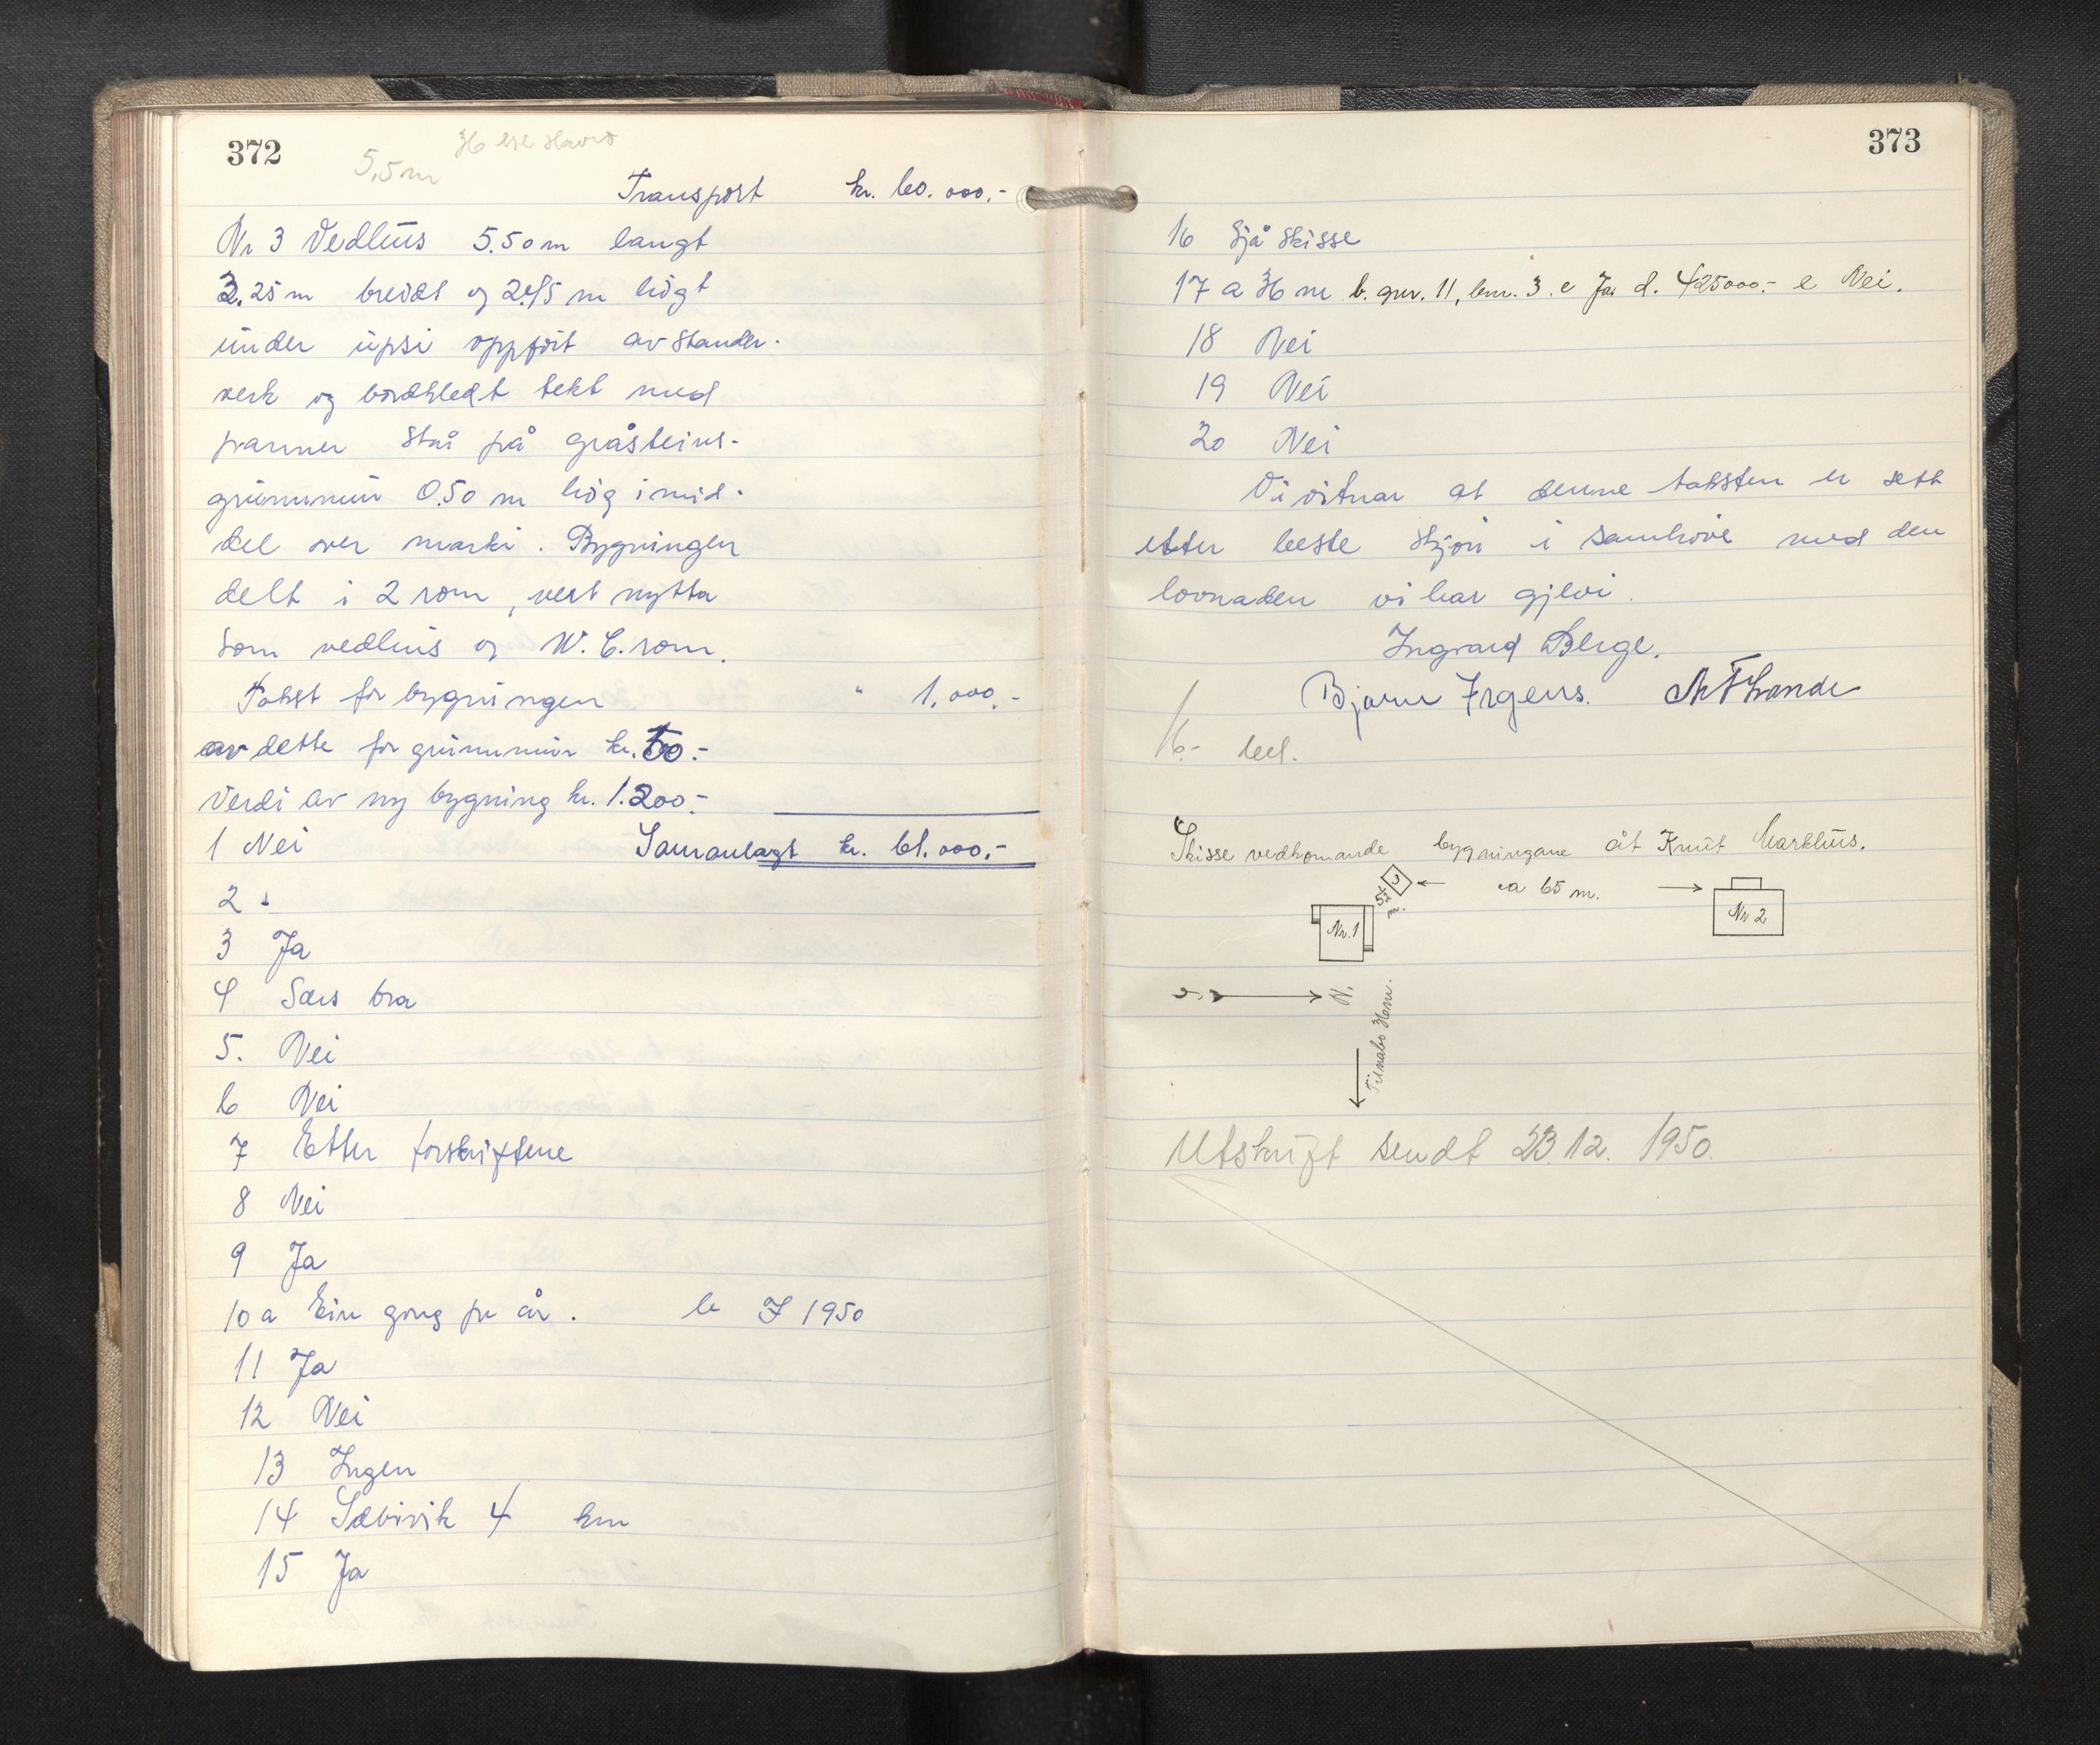 372
5,5 m
Transport kr. 60.000,-
Nr 3 Vedhus 5.50 m langt
3.25 m breidt og 2.45 m högt
under upsi oppfört av stander-
verk og bordkledt tekt med
panner står på gråsteins-
grunnmur 0.50 m hög i mid-
del over marki. Bygningen
delt i 2 rom, vert nytta
som vedhus og W.C. rom.
Takst for bygningen " 1.000.-
av dette for grunnmur kr. 50.-
Verdi av ny bygning kr. 1.200.-
1 Nei Samanlagt kr. 61.000,-
2 "
3 Ja
4 Særs bra
5. Nei
6 Nei
7 Etter forskriftene
8 Nei
9 Ja
10 a Ein gong pr år. b I 1950
11 Ja
12 Nei
13 Ingen
14 Sæbivik 4 km
15 Ja
373
16 Sjå Skisse
17 a 36 m b. gnr. 11, bnr. 3. c Ja d. 425000.- e Nei.
18 Nei
19 Nei
20 Nei
Vi vitnar at denne taksten er sett
etter beste skjön i samhöve med den
lovnaden vi har gjevi.
Ingvard Berge.
Bjarne Irgens.
16.- bet.
Skisse vedkomande bygningane åt Knut Markhus.
3 ca 65 m. Nr 2
Nr. 1
N.
Til nabo 36 m.
Utskrift sendt 23.12. 1950.